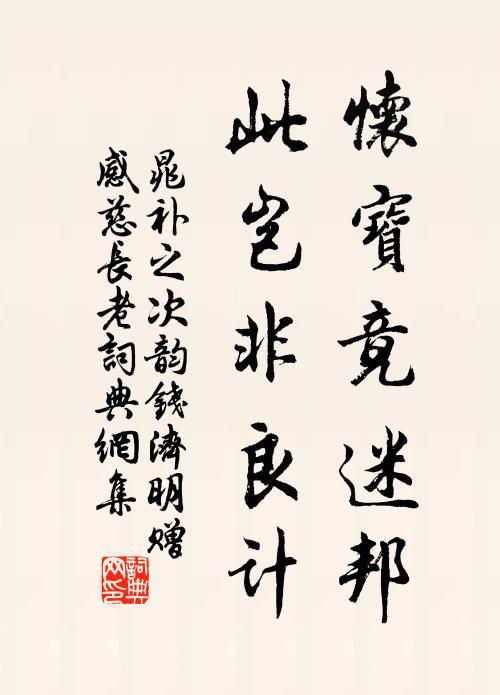 懷寶竟迷邦
此豈非良計
晁补之次韵錢濟明贈
感慈長老詞典網集
詞典
网印